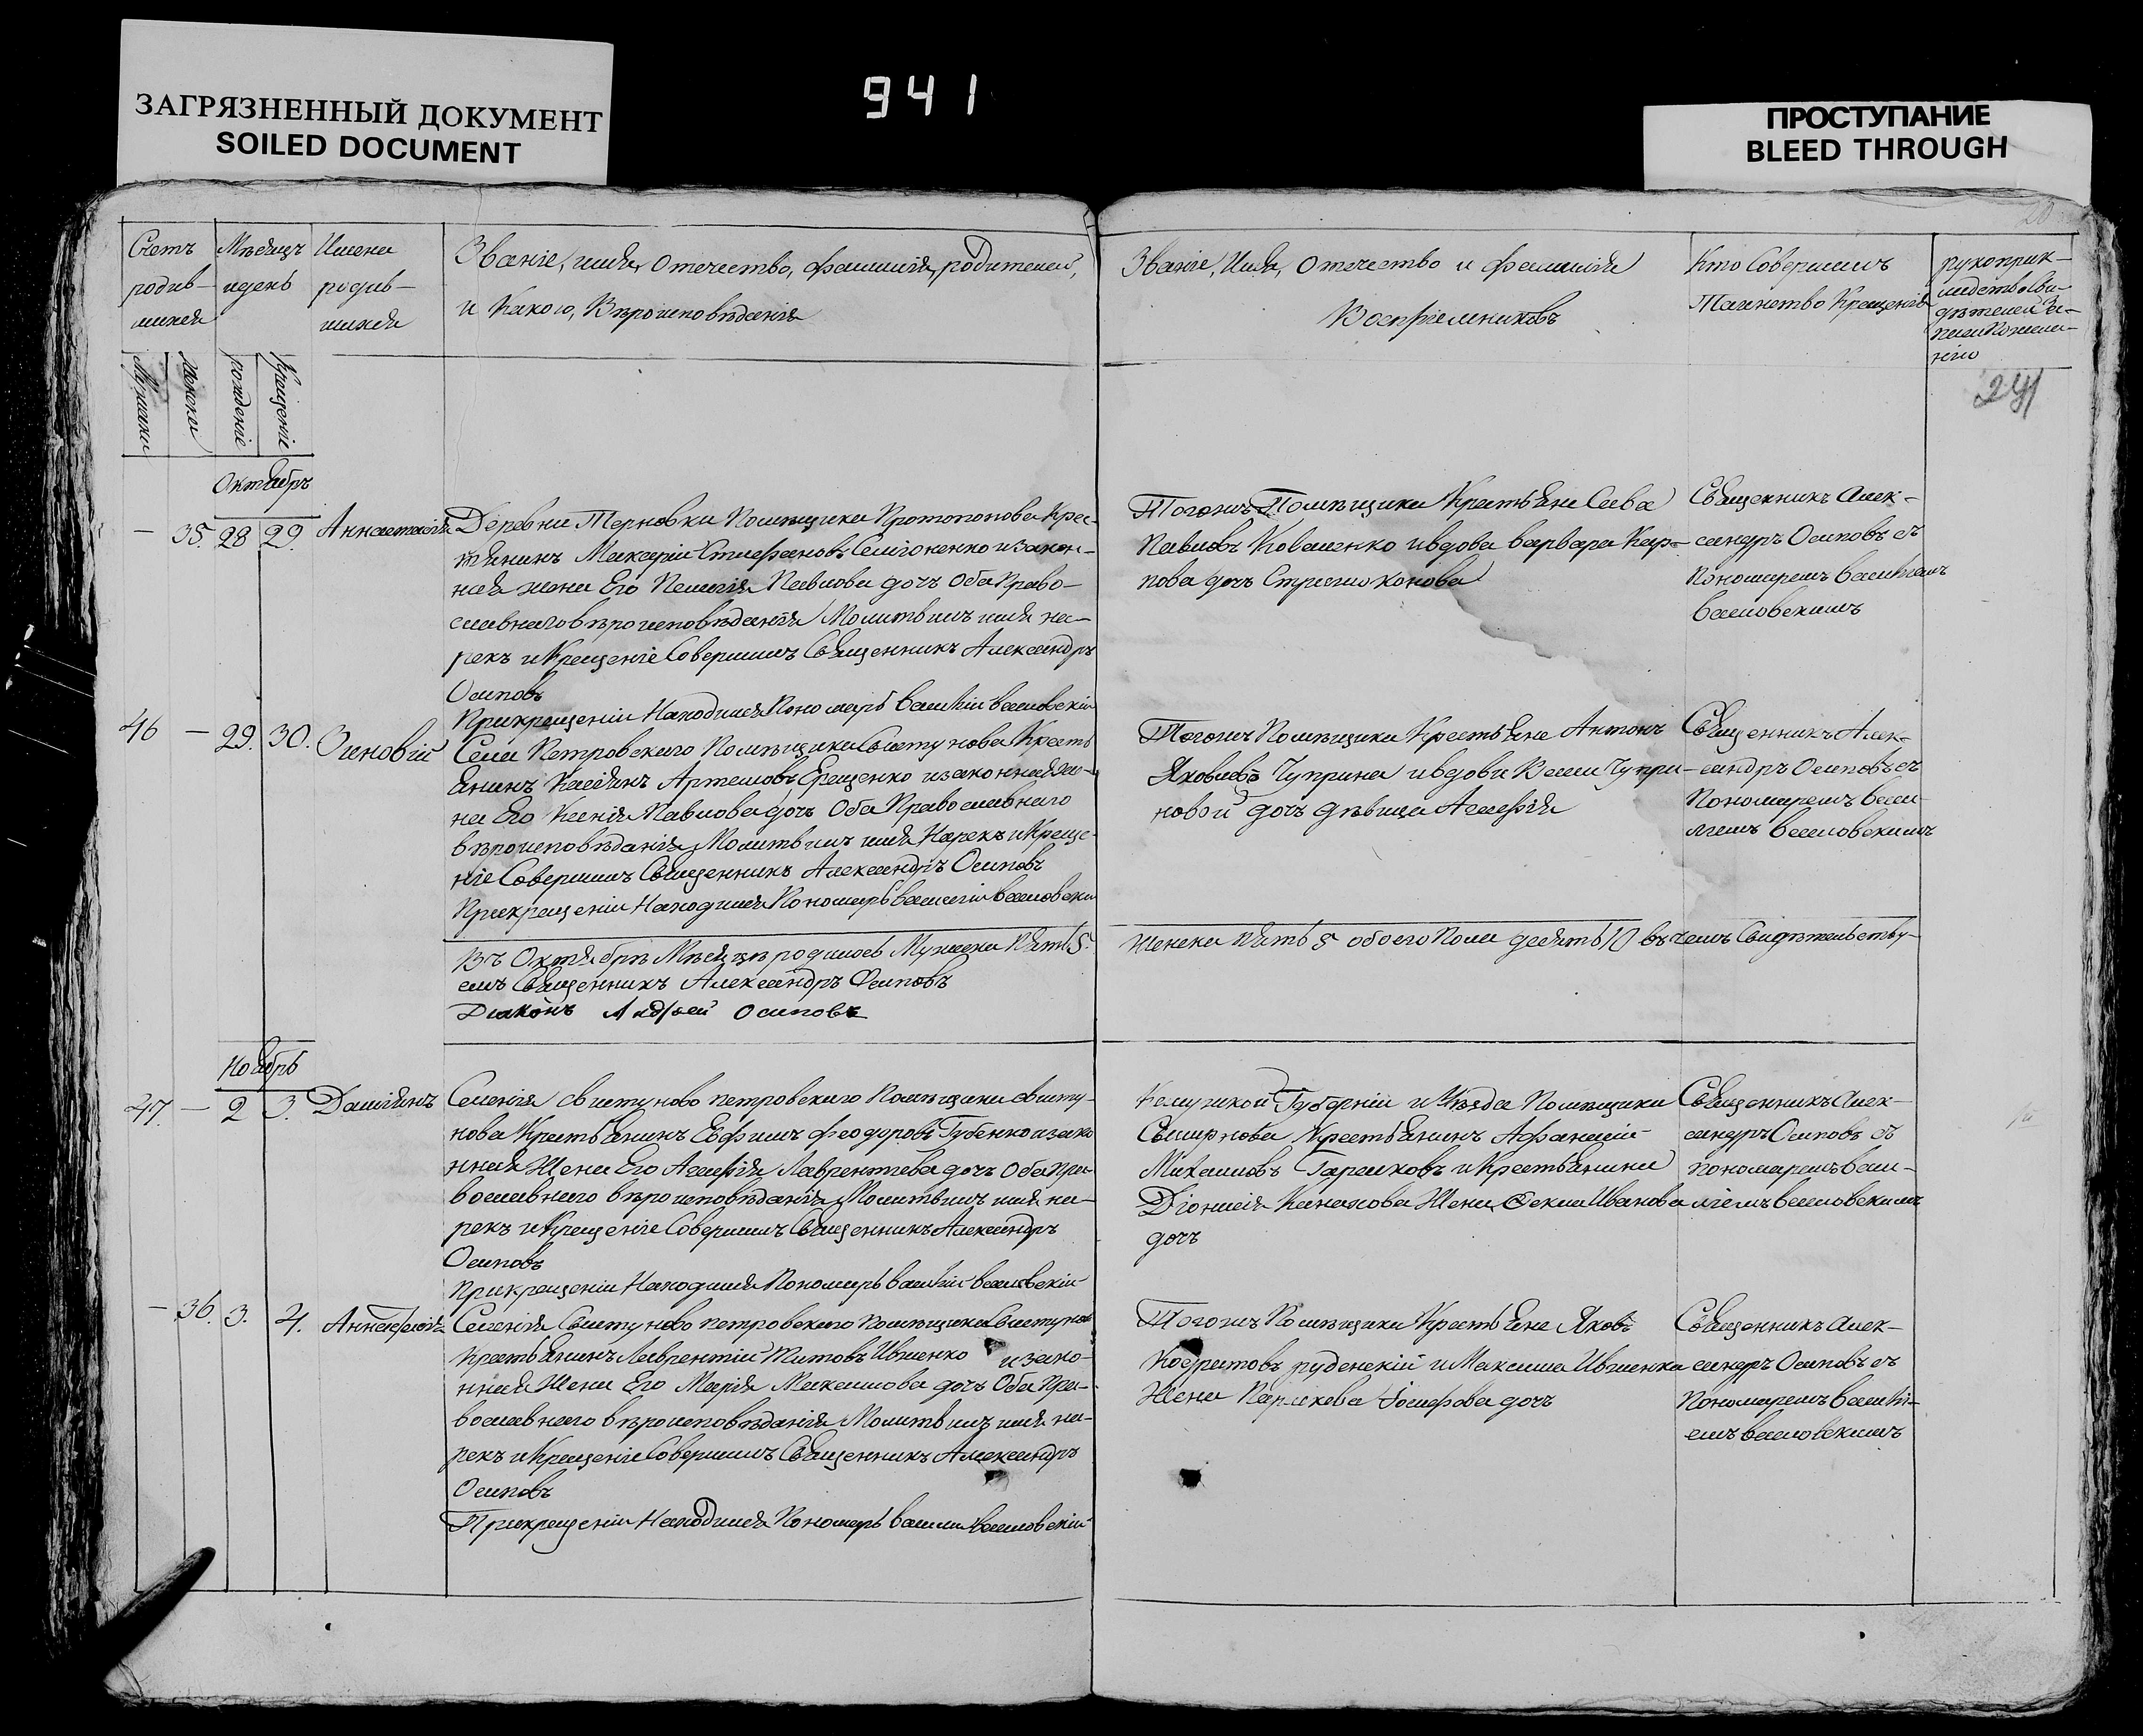 ЗАГРЯЗНЕННЫЙ ДОКУМЕНТ
SOILED DOCUMENT
941
ПРОСТУПАНИЕ
BLEED THROUGH
Счетъ
родив-
шихся
Мѣсяцъ
и день
Имена
родив-
шихся
Званіе, имя, Отечество, фамилія, родителей,
и Какого, Вѣроисповѣданія
Званіе, Имя, Отечество и фамилія
Воспріемниковъ
Кто Совершилъ
Таинство Крещенія
рукоприк-
ладство сви-
дѣтелей за-
писи Пожела-
нію
Мужска
Женска
рожденіе
Крещеніе
241
Октябрь
— 35. 28 29. Аннастасія
Деревни Терновки Помѣщика Протопопова Крес-
тьянинъ Макарій Стефановъ Семіоненко и закон-
ная жена Его Пелагія Павлова дочъ Оба Право-
славнаго вѣроисповѣданія Молитвилъ имя на-
рекъ и Крещеніе Совершилъ Священникъ Александръ
Осиповъ
При крещеніи Находился Пономарь Василій Василовскій
Тогожъ Помѣщика Крестьяне Савва
Павловъ Коваленко и вдова варвара Кар-
пова дочъ
Священникъ Алек-
сандръ Осиповъ съ
Пономаремъ Василіемъ
Василовскимъ
46 — 29. 30. Зиновій
Села Петровскаго Помѣщика Свистунова Кресть
янинъ Касіянъ Артемовъ Ерещенко и законная же-
на Его Ксенія Павлова дочъ Оба Православнаго
вѣроисповѣданія Молитвилъ имя Нарекъ и Креще-
ніе Совершилъ Священникъ Александръ Осиповъ
При крещеніи Находился Пономарь Василій Василовскій
Тогожъ Помѣщика Крестьяне Антонъ
Яковлевъ Чуприна и вдовы Чупри-
новой дочъ дѣвица Агафія
Священникъ Алек-
сандръ Осиповъ съ
Пономаремъ Васи-
ліемъ Василовскимъ
Въ Октябрѣ Мѣсяцѣ родилось Мужска Пять 5.
Женска пять 5 обоего Пола десять 10 въ чемъ Свидѣтельству-
емъ Священникъ Александръ Осиповъ
Діаконъ Андрей Осиповъ
Ноябрь
47. — 2 3. Даміянъ
Селенія Свистуново петровскаго Помѣщика Свисту-
нова Крестьянинъ Евфимъ Феодоровъ Губенко и зако
нная Жена Его Агафія Лаврентіева дочъ Оба Пра-
вославнаго вѣроисповѣданія Молитвилъ имя на-
рекъ и Крещеніе Совершилъ Священникъ Александръ
Осиповъ
При крещеніи Находился Пономарь Василій Василовскій
Калужской Губерніи и Уѣзда Помѣщика
Смирнова Крестьянинъ Афанасій
Михаиловъ и Крестьянина
Діонисія Жена Фекла Иванова
дочъ
Священникъ Алек-
сандръ Осиповъ съ
пономаремъ Васи-
ліемъ Василовскимъ
— 36. 3. 4.
Селенія Свистуново петровскаго Помѣщика Свистунова
Крестьянинъ Лаврентій Титовъ Ившенко и зако-
нная Жена Его Марія Михаилова дочъ Оба Пра-
вославнаго вѣроисповѣданія Молитвилъ имя на-
рекъ и Крещеніе Совершилъ Священникъ Александръ
Осиповъ
При крещеніи Находился Пономарь Василій Василовскій
Тогожъ Помѣщика Крестьяне Яковъ
Кодратовъ руденскій и Максима Ившенка
Жена Параскева Іосифова дочъ
Священникъ Алек-
сандръ Осиповъ съ
Пономаремъ Василі-
емъ Василовскимъ